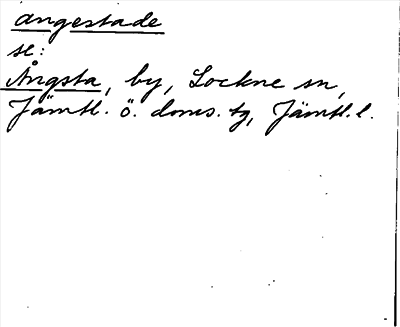 angestade
se:
Ångsta, by, Lockne sn,
Jämtl. ö. doms. tg, Jämtl. l.